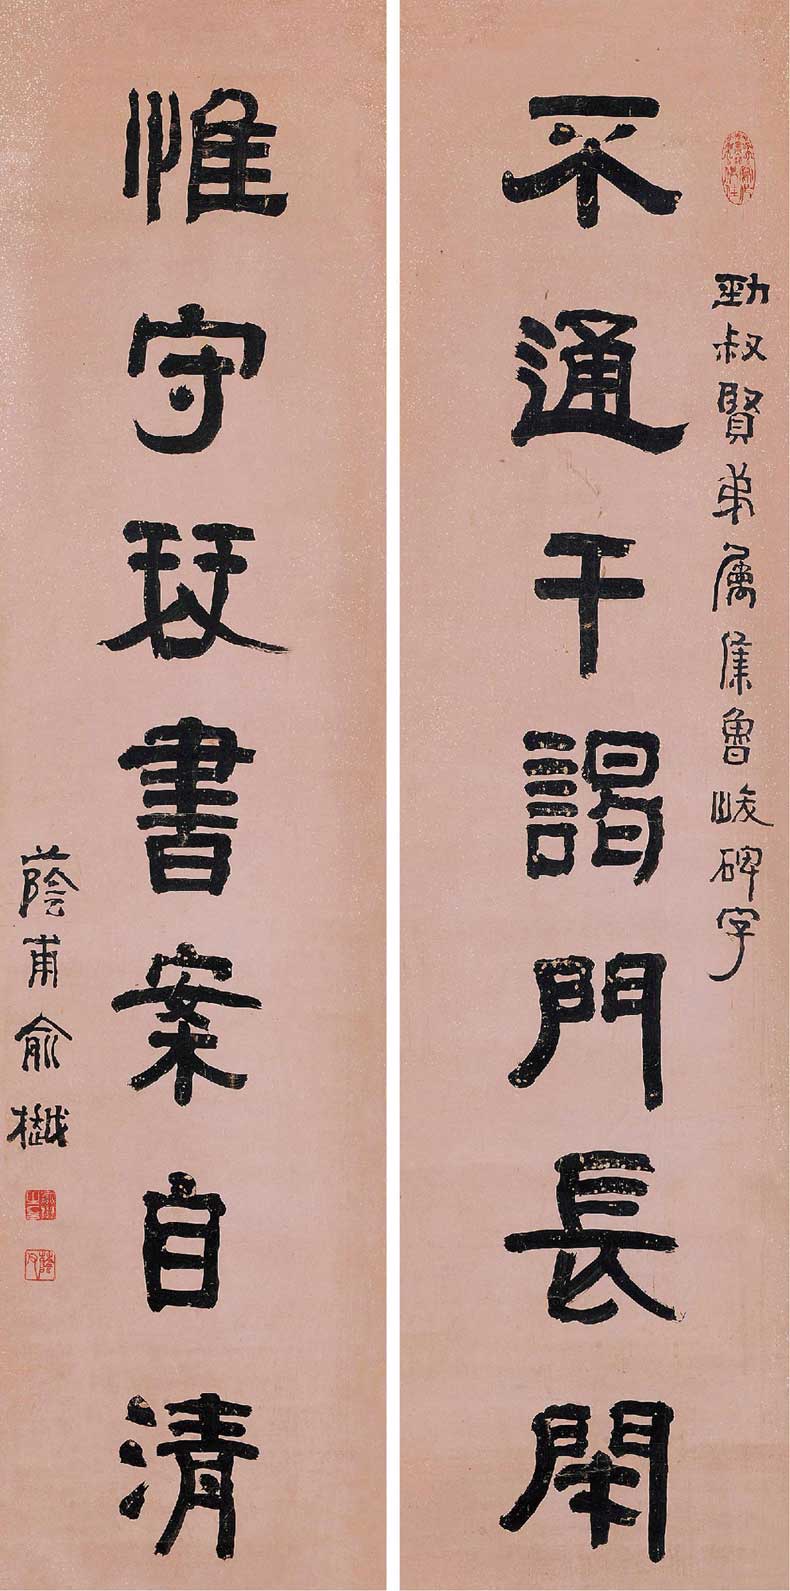 勁叔賢弟屬集魯峻碑字
不通干謁門長閉
惟守琴書案自清
蔭甫俞樾